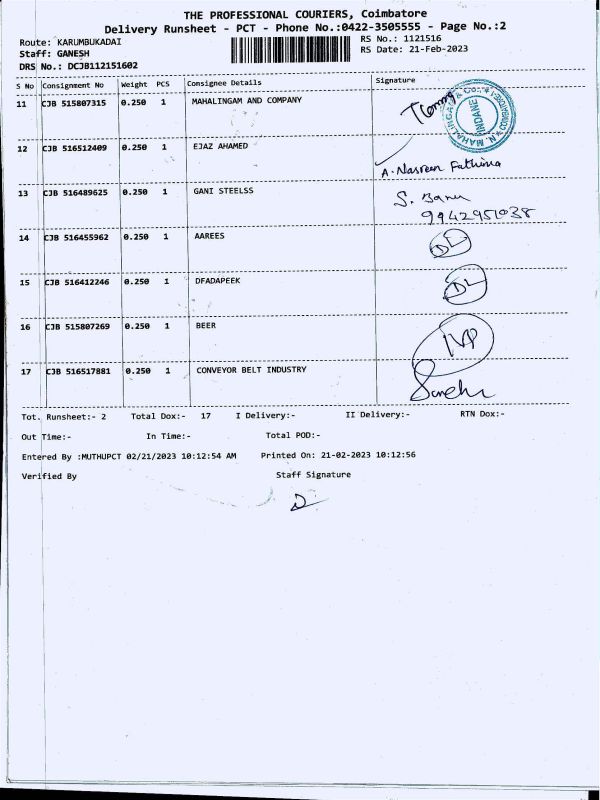 THE PROFESSIONAL COURIERS, Coimbatore
Delivery Runsheet - PCT - Phone No.:0422-3505555 - Page No.:2
Route: KARUMBUKADAI
RS No.: 1121516
Staff: GANESH
RS Date: 21-Feb-2023
DRS No.: DCJB112151602
S No Consignment No Weight PCS Consignee Details Signature
11 CJB 515807315 0.250 1 MAHALINGAM AND COMPANY
N. MAHALINGAM & Co., COIMBATORE-1
INDANE
12 CJB 516512409 0.250 1 EJAZ AHAMED
A. Nasreen Fathima
13 CJB 516489625 0.250 1 GANI STEELSS
S. Banu
9942951038
14 CJB 516455962 0.250 1 AAREES DL
15 CJB 516412246 0.250 1 DFADAPEEK DL
16 CJB 515807269 0.250 1 BEER
17 CJB 516517881 0.250 1 CONVEYOR BELT INDUSTRY
Tot. Runsheet:- 2 Total Dox:- 17 I Delivery:- II Delivery:- RTN Dox:-
Out Time:- In Time:- Total POD:-
Entered By :MUTHUPCT 02/21/2023 10:12:54 AM Printed On: 21-02-2023 10:12:56
Verified By Staff Signature